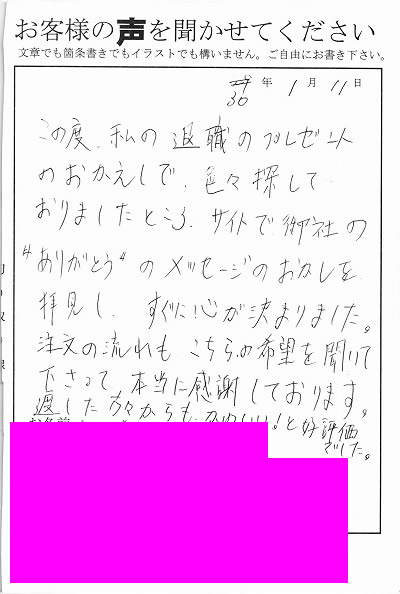 お客様の声を聞かせてください
文章でも箇条書きでもイラストでも構いません。ご自由にお書き下さい。
30年1月11日
この度、私の退職のプレゼント
のおかえしで、色々探して
おりましたところ、サイトで御社の
"ありがとう"のメッセージのおかしを
拝見し、すぐに心が決まりました。
注文の流れも こちらの希望を聞いて
下さって、本当に感謝しております。
渡した方々からも、かわいい!と好評価
でした。